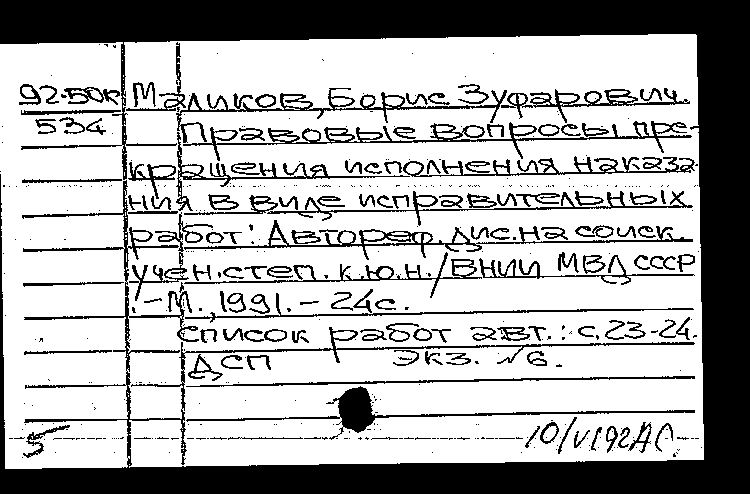 92-50к Маликов, Борис Зуфарович.
534 Правовые вопросы пре-
кращения исполнения наказа-
ния в виде исправительных
работ: Автореф. дис. на соиск.
учен. степ. к.ю.н. / ВНИИ МВД СССР
.-М., 1991. - 24с.
Список работ авт.: с. 23-24.
ДСП экз. №6.
5 10/VI 92